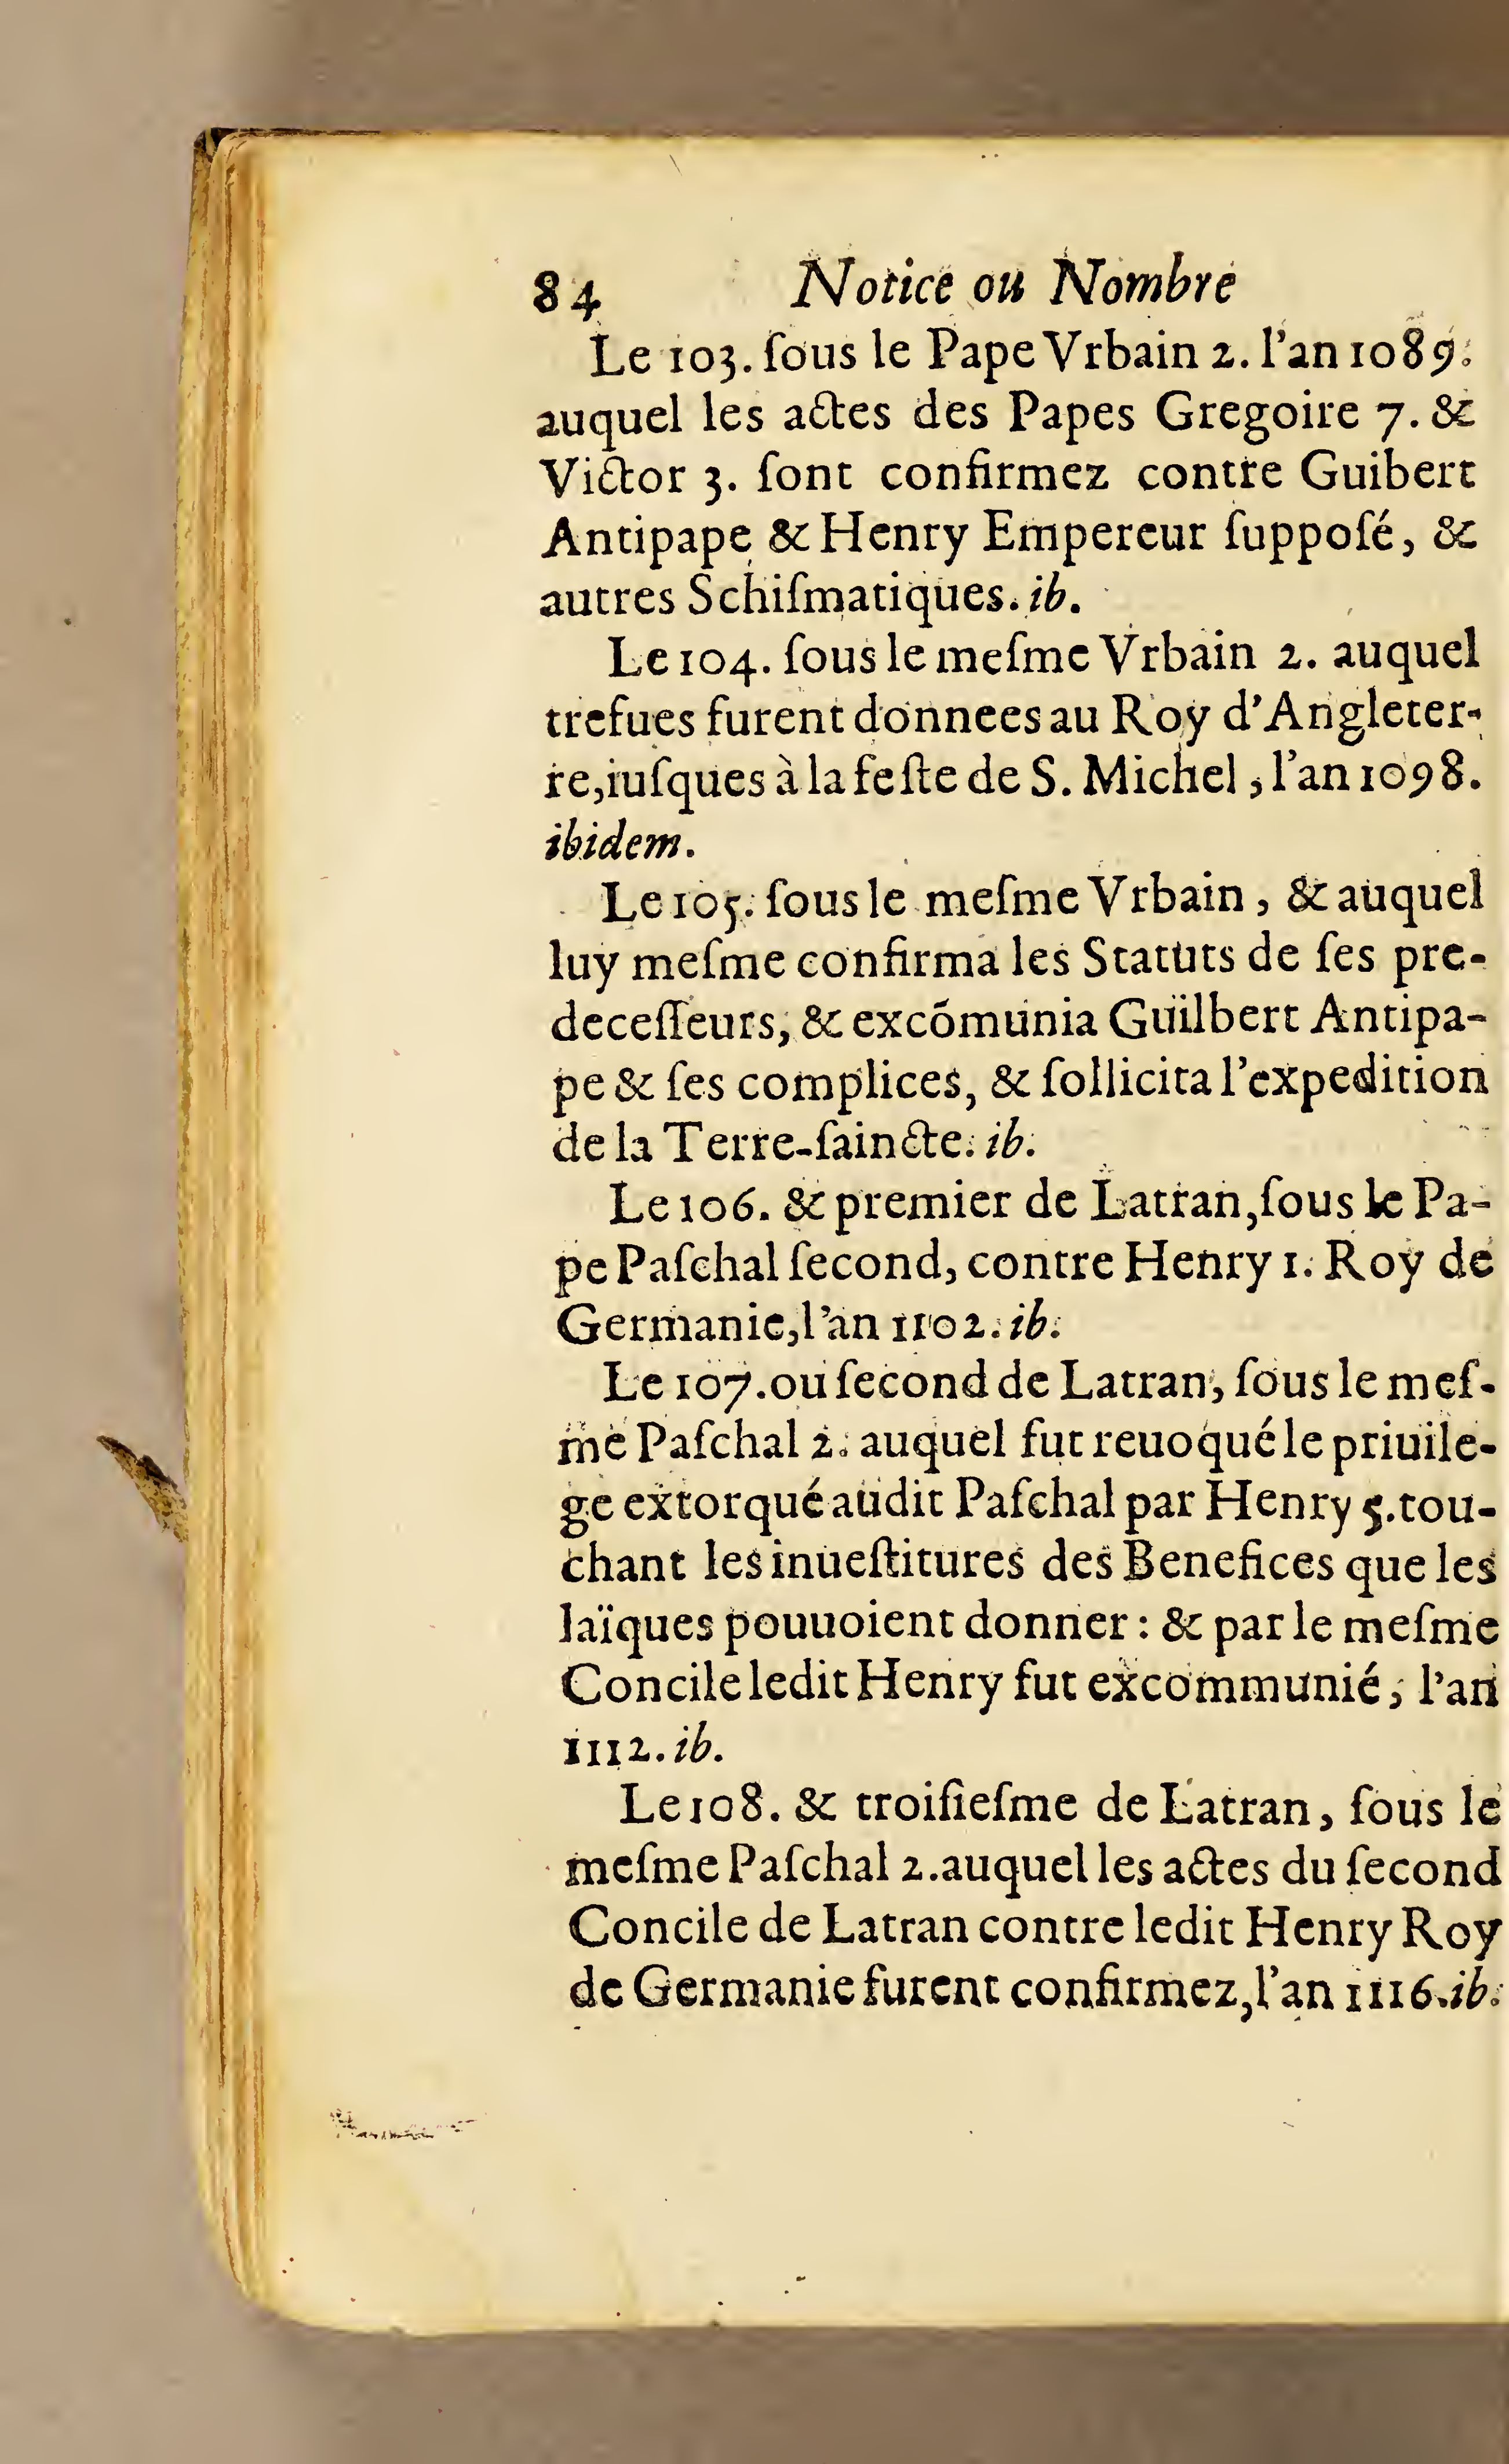 84 Notice ou Nombre
Le 103. ſous le Pape Vrbain 2. l'an 1089.
auquel les actes des Papes Gregoire 7. &
Victor 3. ſont confirmez contre Guibert
Antipape & Henry Empereur ſuppoſé, &
autres Schiſmatiques. ib.
Le 104. ſous le meſme Vrbain 2. auquel
trefues furent donnees au Roy d'Angleter-
re, iuſques à la feſte de S. Michel, l'an 1098.
ibidem.
Le 105. ſous le meſme Vrbain, & auquel
luy meſme confirma les Statuts de ſes pre-
deceſſeurs, & excõmunia Guilbert Antipa-
pe & ſes complices, & ſollicita l'expedition
de la Terre-ſaincte. ib.
Le 106. & premier de Latran, ſous le Pa-
pe Paſchal ſecond, contre Henry 1. Roy de
Germanie, l'an 1102. ib.
Le 107. ou ſecond de Latran, ſous le meſ-
me Paſchal 2. auquel fut reuoqué le priuile-
ge extorqué audit Paſchal par Henry 5. tou-
chant les inueſtitures des Benefices que les
laïques pouuoient donner : & par le meſme
Concile ledit Henry fut excommunié, l'an
1112. ib.
Le 108. & troiſieſme de Latran, ſous le
meſme Paſchal 2. auquel les actes du ſecond
Concile de Latran contre ledit Henry Roy
de Germanie furent confirmez, l'an 1116. ib.